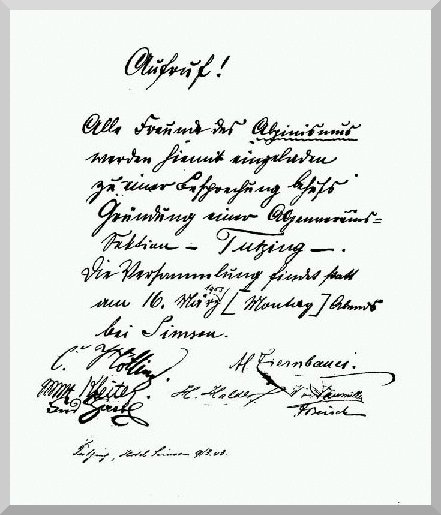 Aufruf!
Alle Freunde des Alpinismus
werden hiermit eingeladen
zu einer Besprechung behufs
Gründung einer Alpenvereins=
Sektion – Tutzing –.
Die Versammlung findet statt
am 16. März [Montag] Abends
bei Simson.
H.
Tutzing, Hotel Simson